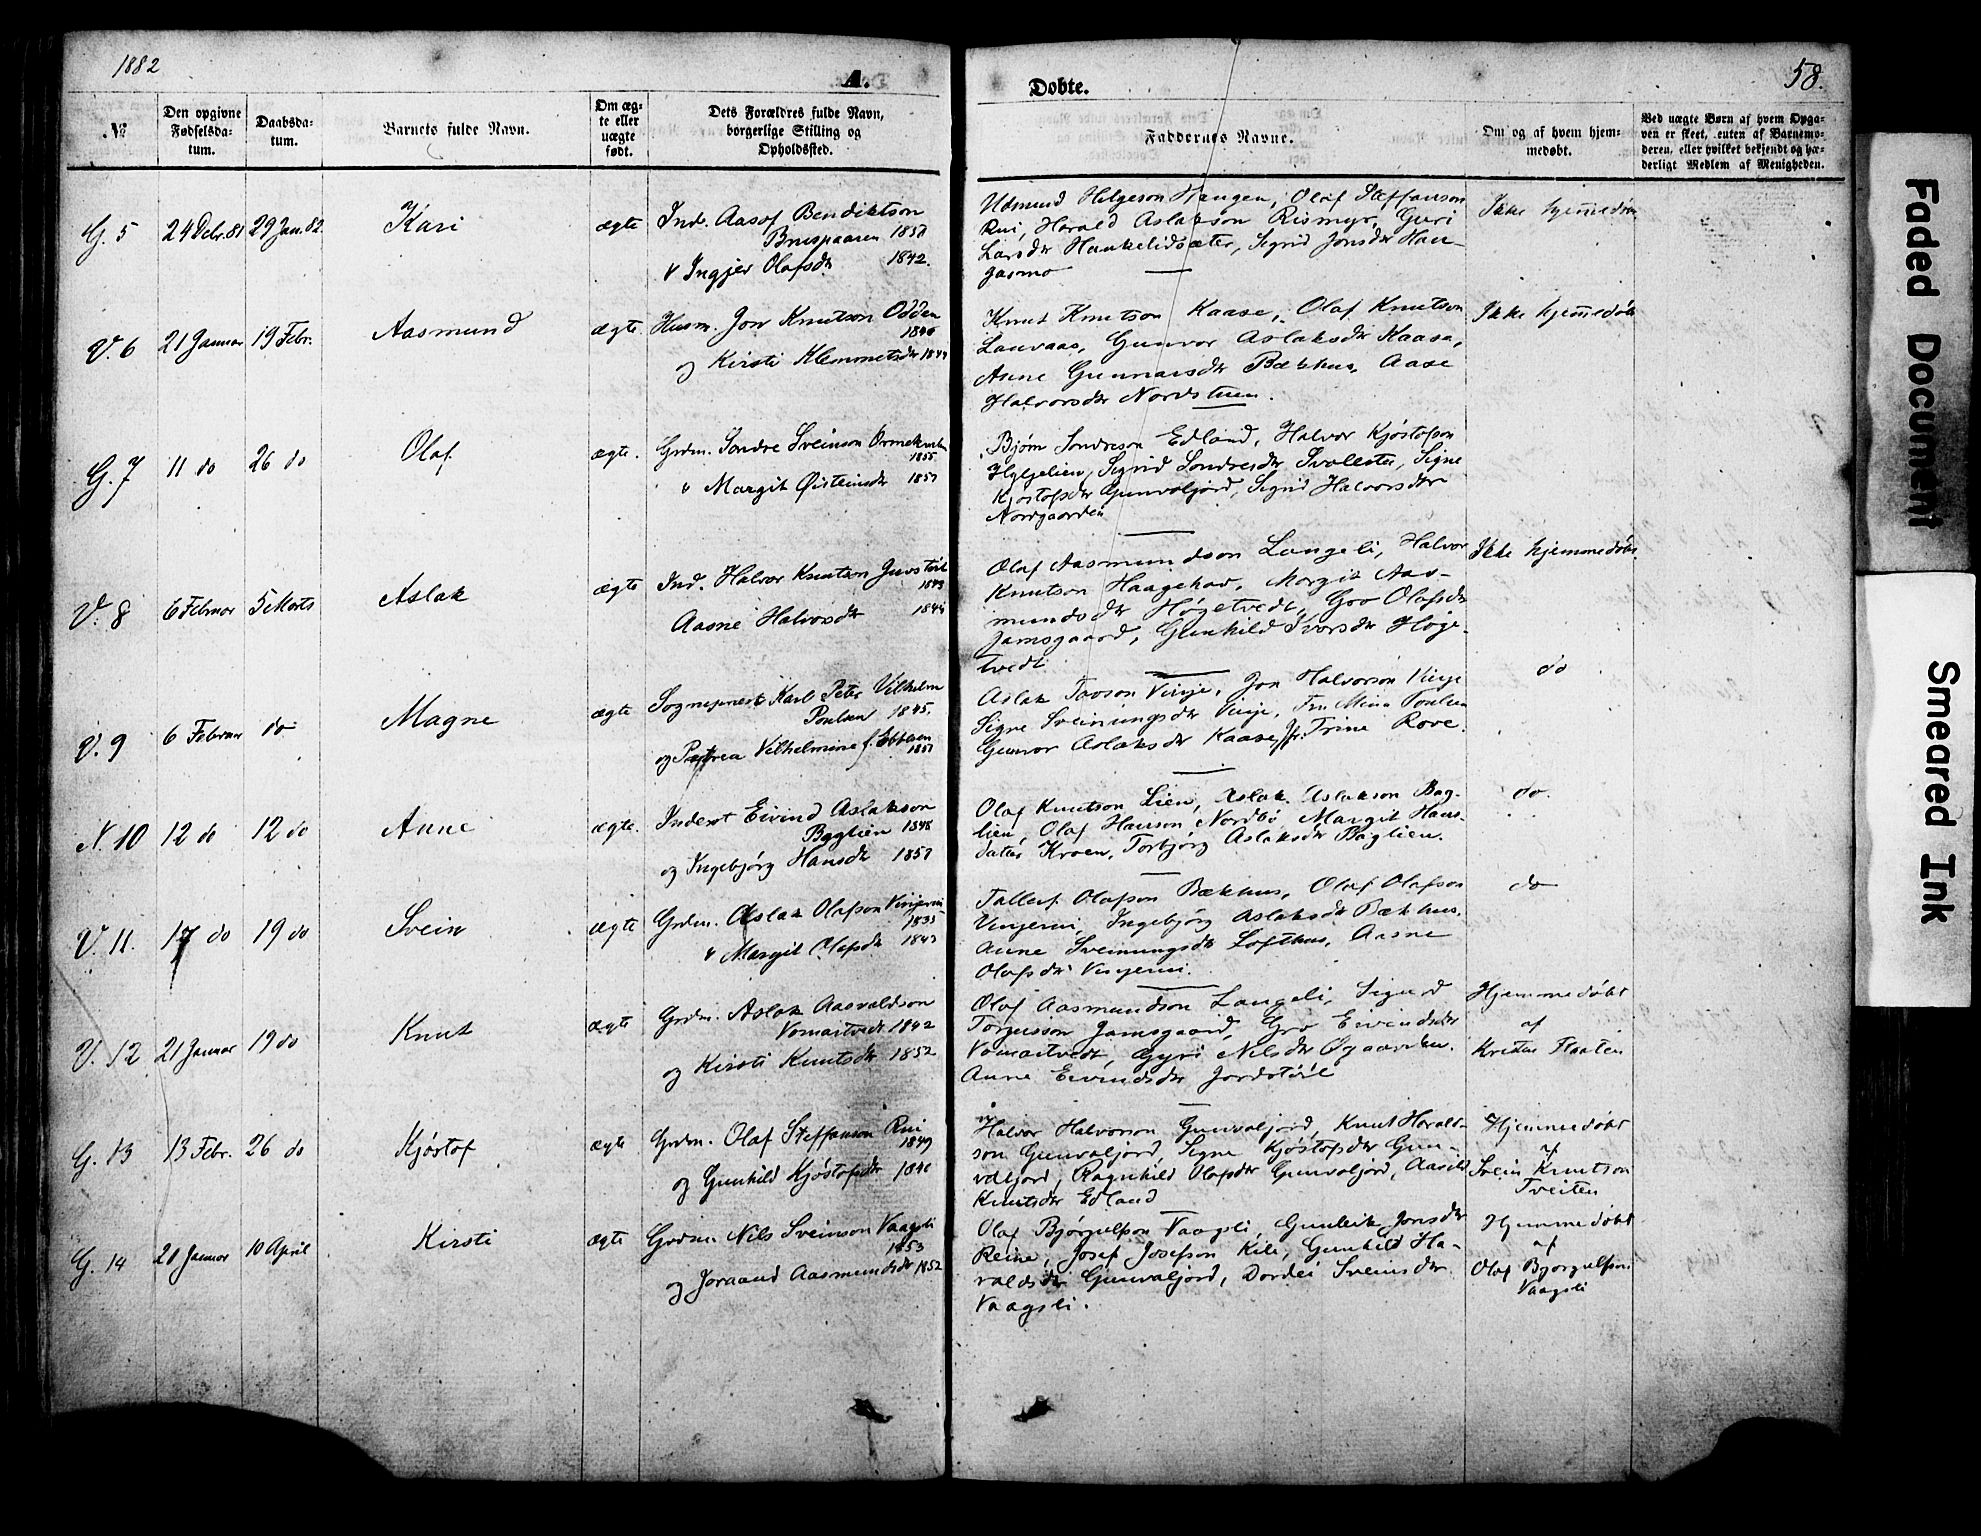 1882
A. Døbte.
58.
№
Den opgivne Fødselsda-tum.
Daabsda-tum.
Barnets fulde Navn.
Om æg-te eller uægte født.
Dets Forældres fulde Navn, borgerlige Stilling og Opholdssted.
Faddernes Navne.
Om og af hvem hjem-medøbt.
Ved uægte Børn af hvem Opga-ven er skeet, enten af Barnemo-deren, eller hvilket bekjendt og hæ-derligt Medlem af Menigheden.
G. 5 24 Debr. 81 29 Jan. 82 Kari ægte Ind. Aasof Bendiktson
1851
& Ingjer Olafsdr 1842.
Udmund Helgeson Haugen, Olaf Steffanson
Rui, Harald Aslakson Rismyr, Guri
Larsdr Haukelidsæter, Sigrid Jonsdr Hau-
gasmo
Ikke hjemmedøbt
V. 6 21 Januar 19 Febr. Aasmund ægte Husm. Jon Knutson Odden
1840
og Kirsti Klemmetsdr 1844
Knut Knutson Kaase, Olaf Knutson
Lauvaas, Gunvor Aslaksdr Kaasa,
Anne Gunnarsdr Bækhus, Aase
Halvorsdr Nordstuen.
Ikke hjemmedøbt
G. 7 11 do 26 do Olaf ægte. Grdm. Sondre Sveinson
1855
" Margit Øisteinsdr 1857
Bjørn Sondreson Edland, Halvor Kjøstofson
Hylgelien, Sigrid Sondresdr Svalestu, Signe
Kjøstofsdr Gunvaljord, Sigrid Halvorsdr
Nordgaarden
V. 8 6 Februar 5 Marts Aslak ægte Ind. Halvor Knutson
1843
Aasne Halvorsdr 1844
Olaf Aasmundson Langeli, Halvor
Knutson Haagehav, Margit Aas-
mundsdr Høgetvedt, Gro Olafsdr
Jamsgaard, Gunhild Ivarsdr Høge-
tvedt
Ikke hjemmedøbt
V. 9 6 Februar do Magne ægte Sognepræst Karl Peter Vilhelm
Poulsen 1845.
og Petrea Vilhelmine f. Ebbesen
1851
Aslak Tavson Vinje, Jon Halvorson Vinje
Signe Sveinungsdr Vinje, Fru Mina Poulsen
Gunvor Aslaksdr Kaase, Jfr. Trine Rove.
do
N. 10 12 do 12 do Anne ægte. Inderst Eivind Aslakson
Baglien 1848
og Ingebjørg Hansdr 1857
Olaf Knutson Lien, Aslak Aslakson Bag-
lien, Olaf Hanson Nordbø, Margit Hans-
datter Kroen, Torbjørg Aslaksdr Baglien.
do.
V. 11. 17 do 19 do Svein ægte Grdm. Aslak Olafson Vinjerui
1835
& Margit Olafsdr 1843
Tallef Olafson Bækhus, Olaf Olafson
Vinjerui, Ingebjørg Aslaksdr Bækhus,
Anne Sveinungsdr Lofthus, Aasne
Olafsdr Vinjerui.
do
V. 12 21 Januar 19 do Knut ægte Grdm. Aslak Aasvaldson
Vomaitvedt 1842
og Kirsti Knutsdr 1852
Olaf Aasmundson Langeli, Sigurd
Torgusson Jamsgaard, Gro Eivindsdr
Vomartvedt, Gyri Nilsdr Øgaarden.
Anne Eivindsdr Jordstøil
Hjemmedøbt
af
Kristen Flaaten
G. 13 13 Febr. 26 do Kjøstof ægte Grdm. Olaf Steffanson Rui
1849
og Gunhild Kjøstofsdr 1840
Halvor Halvorson Gunvaljord, Knut Harald-
son Gunvaljord, Signe Kjøstofsdr Gun-
valjord, Ragnhild Olafsdr Gunvaljord, Aasild
Knutsdr Edland
Hjemmedøbt
af
Svein Knutson
Tveiten
G. 14 20 Januar 10 April Kirsti ægte Grdm. Nils Sveinson Vaagsli
1853
og Joraand Aasmundsdr 1852
Olaf Bjørgulfson Vaagsli, Gunleik Jonsdr
Reine, Josef Josefson Kile, Gunhild Ha-
raldsdr Gunvaljord, Dordei Sveinsdr
Vaagsli.
Hjemmedøbt
af
Olaf Bjørgulfson
Vaagsli
Faded Document
Smeared Ink